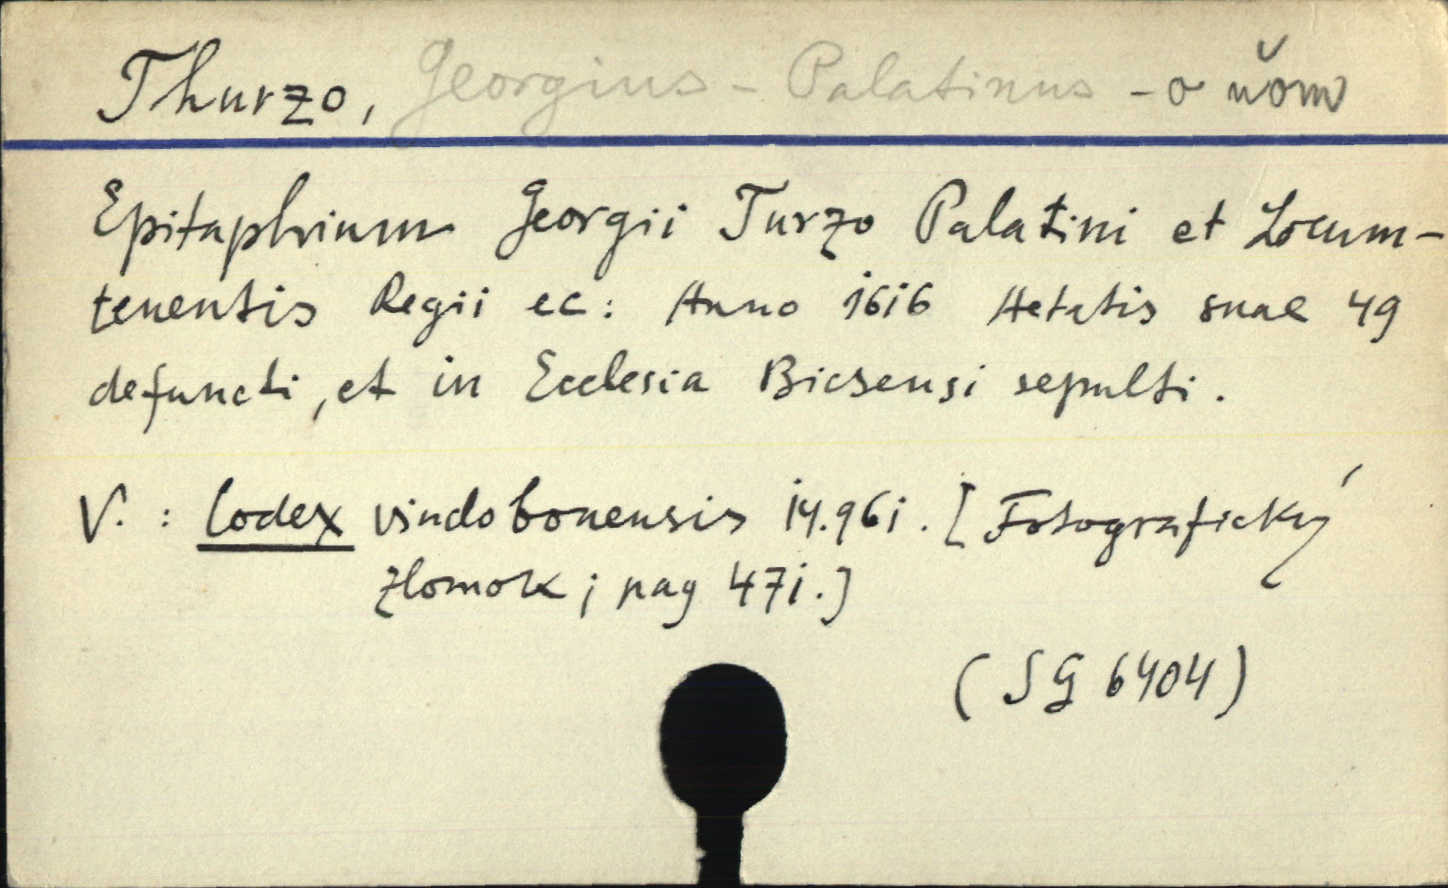 Thurzo, Georgius - Palatinus - o ňom
Epitaphium Georgii Turzo Palatini et Locum-
tenentis Regii ec: Anno 1616 Aetatis suae 49
defuncti, et in Ecclesia Bicsensi sepulti.
V. : Codex vindobonensis 14.961. [Fotografický
zlomok; pag 471.]
(SG 6404)